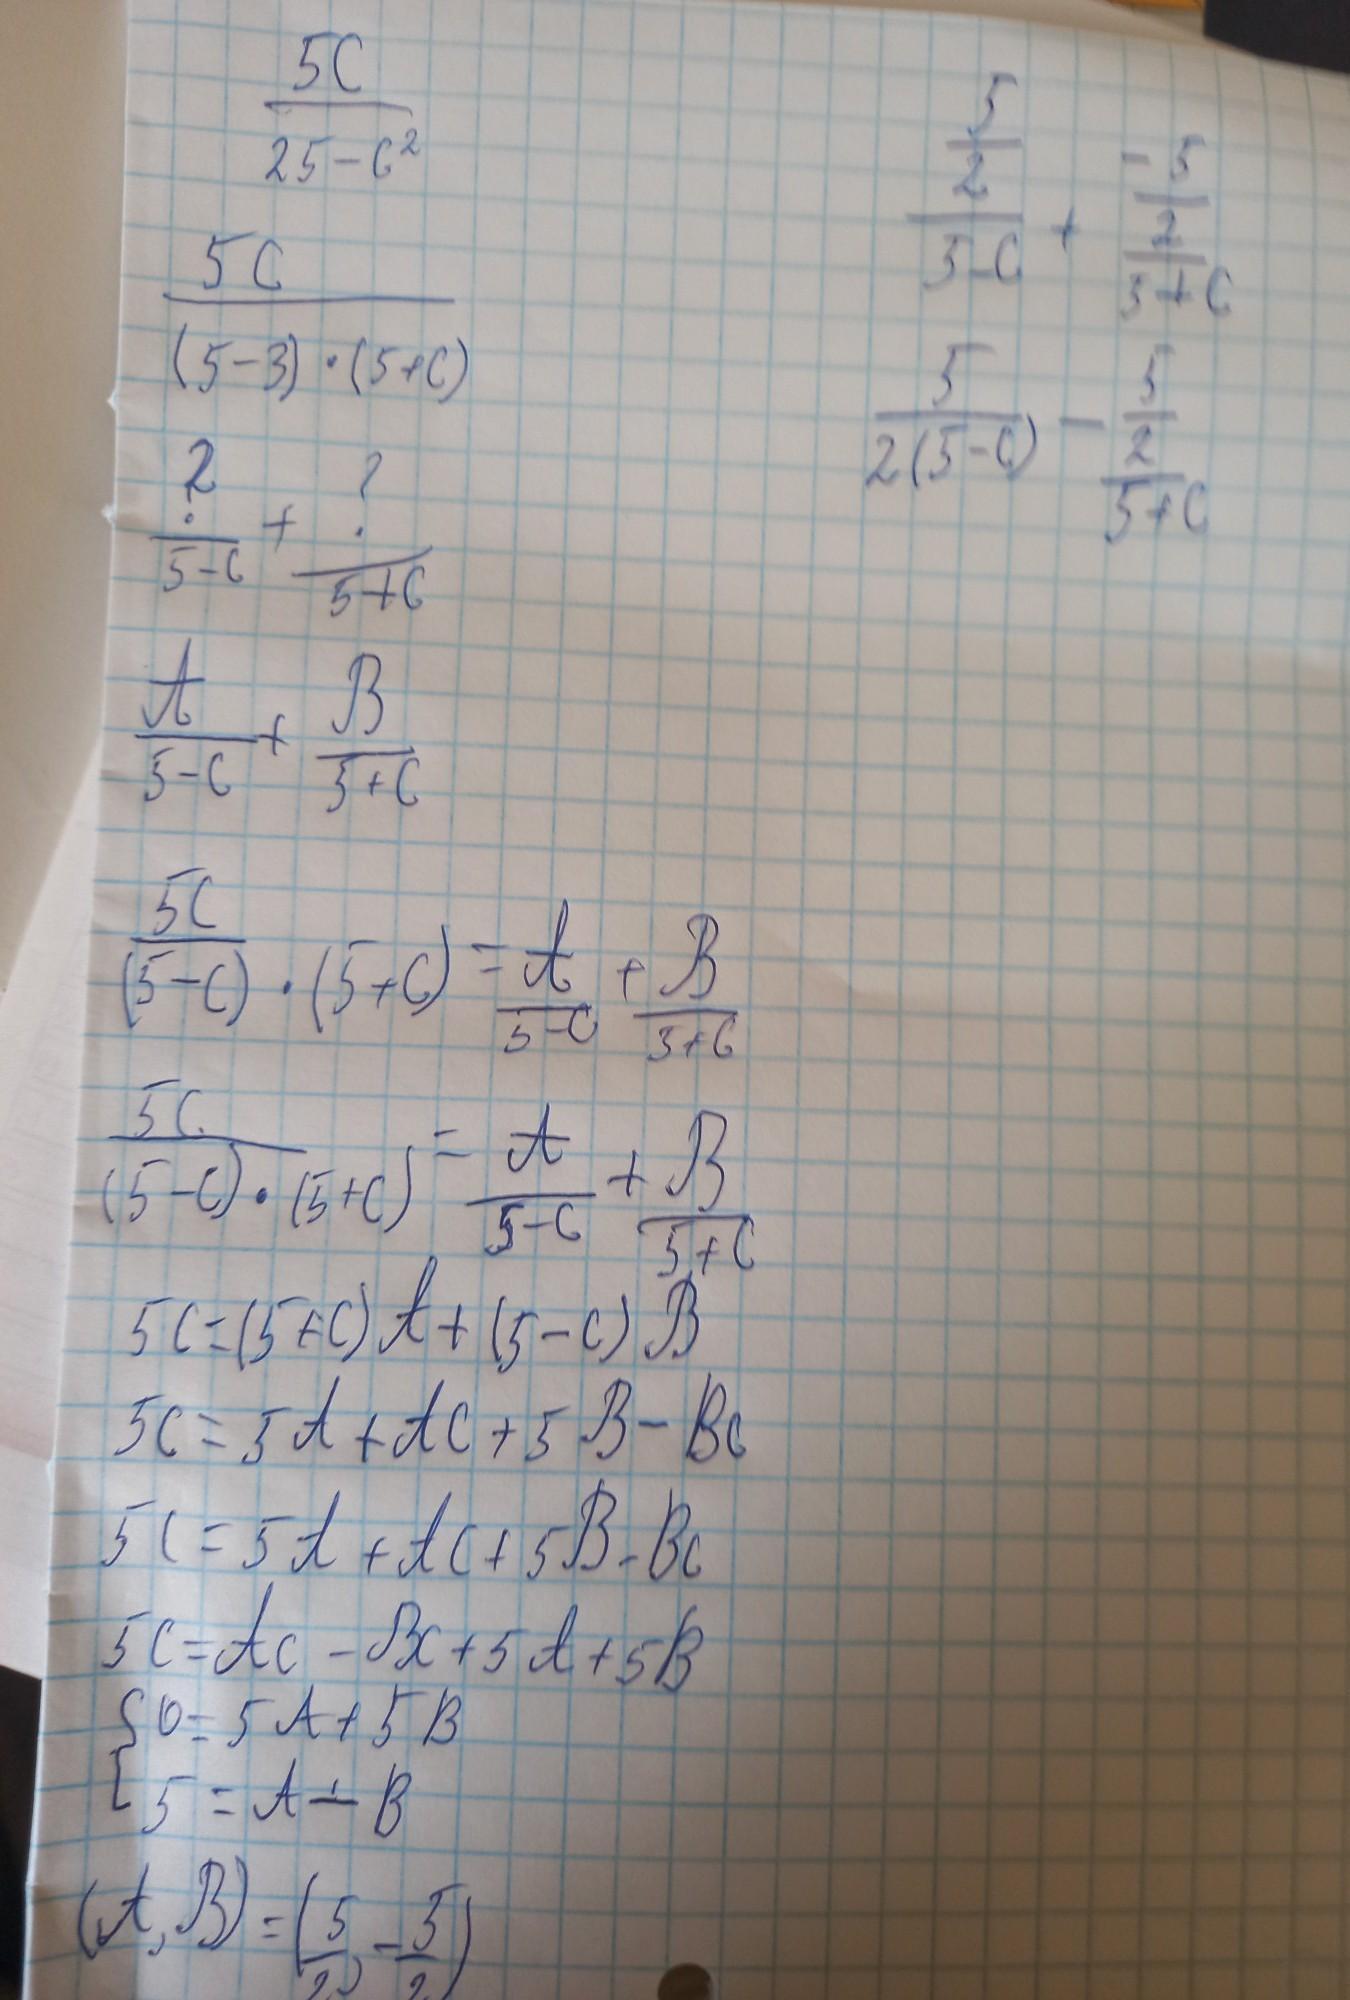 5C
25-C²
5C
(5-3)·(5+C)
? + ?
5-C 5+C
A + B
5-C 5+C
5C = A + B
(5-C)·(5+C) 5-C 5+C
5C = A + B
(5-C)·(5+C) 5-C 5+C
5C=(5+C)A+(5-C)B
5C=5A+AC+5B-BC
5C=5A+AC+5B-BC
5C=AC-BC+5A+5B
{0=5A+5B
5=A-B
(A,B)=(5/2,-5/2)
5 -5
2 + 2
5-C 5+C
5 - 5
2(5-C) 2
5+C